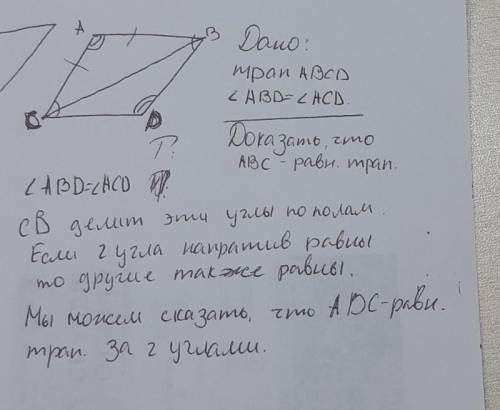 A
B
C
D
Дано:
трап ABCD
∠ABD=∠ACD.
Доказать, что
ABC - равн. трап.
Т:
∠ABD=∠ACD
CB делит эти углы по полам.
Если 2 угла напратив равны
то другие также равны.
Мы можем сказать, что ADC-равн.
трап. за 2 углами.